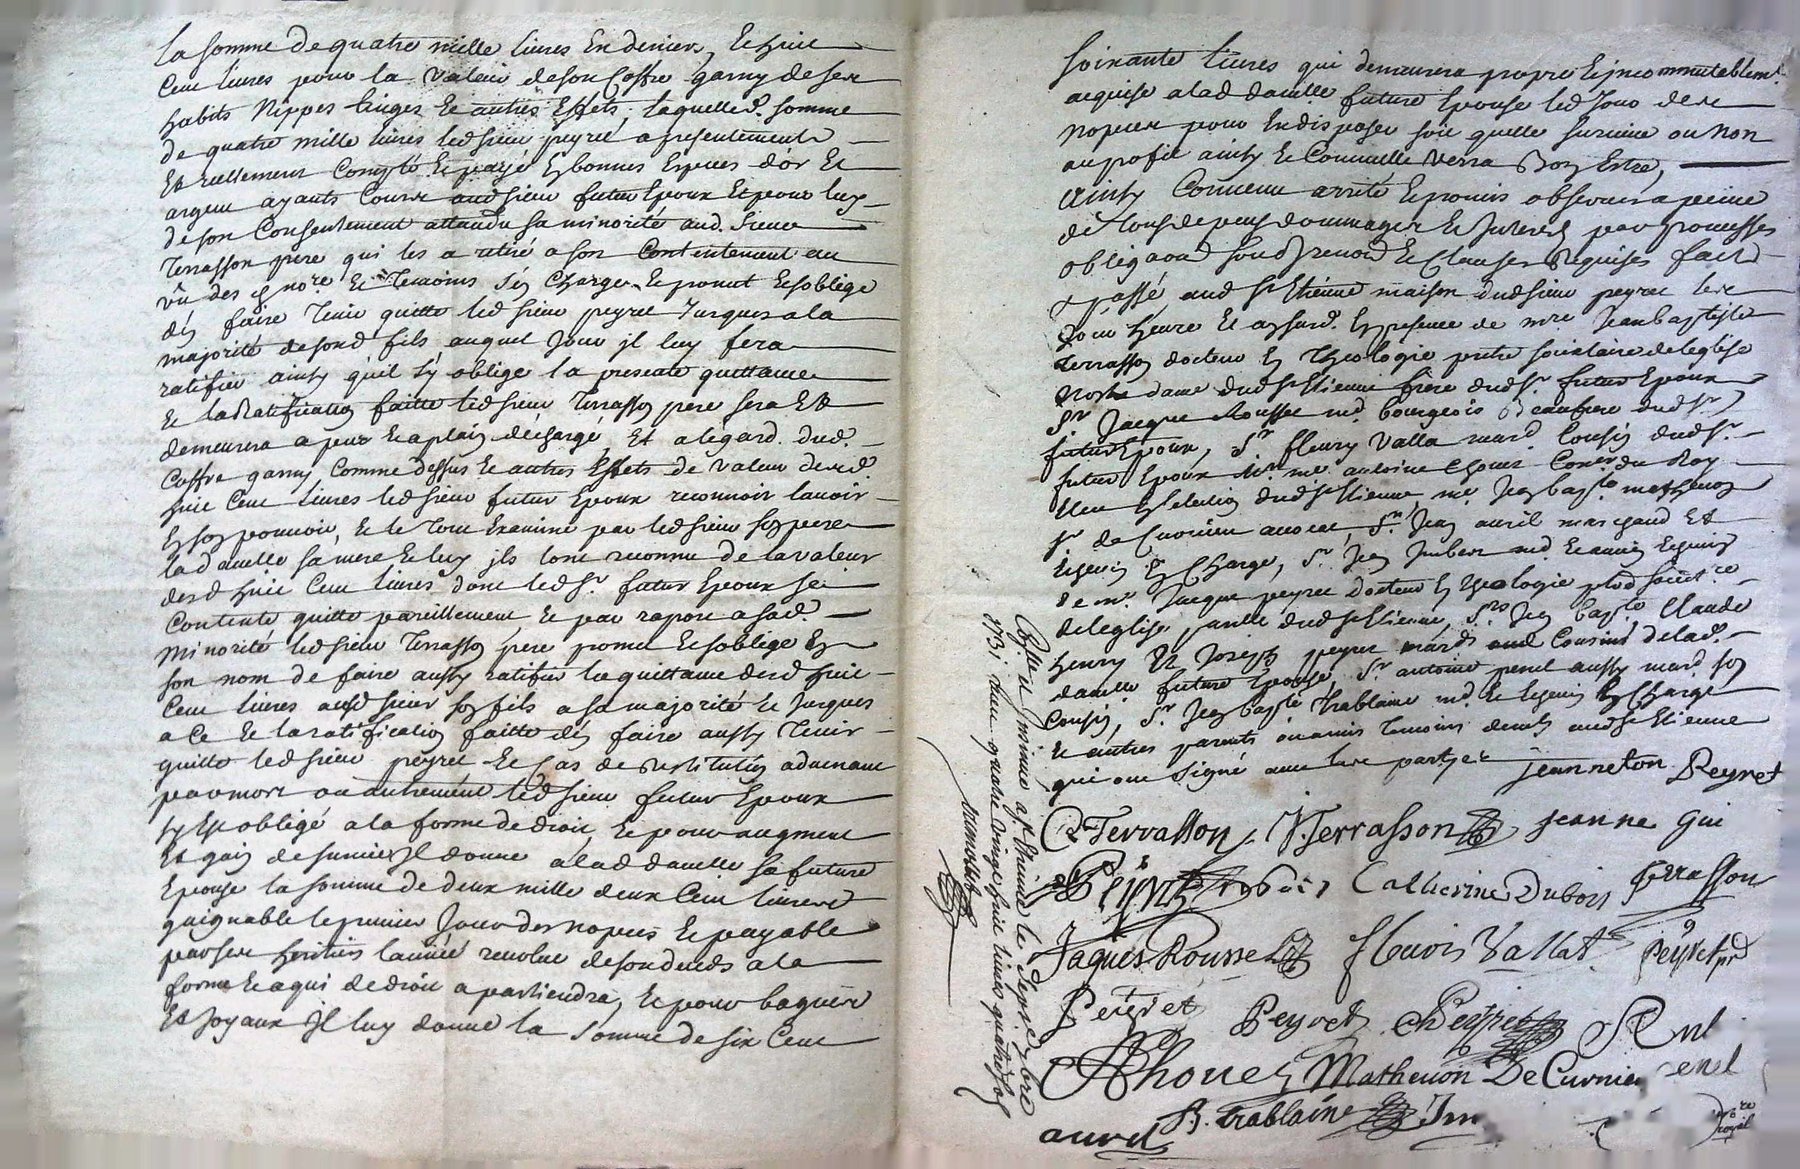 la somme de quatre mille livres En deniers, Et huit
Cent livres pour la valeur de son Coffre garny de ses
habits Nippes linges Et autres Effets, laquelle d. somme
de quatre mille livres led sieur peyret a presentement
Et reellement Compté Et payé En bonnes Especes d'or Et
argent ayants Cours aud sieur futur Epoux Et pour luy
de son Consentement attendu sa minorité aud. sieur
Terrasson pere qui les a retiré a son Contentement au
vû des no.re Et Temoins s'en Charge Et promet Et soblige
d'en faire Tenir quitte led sieur peyret Jusques a la
majorité de sond fils auquel Jour jl luy fera
ratiffier ainsy qu'il s'y oblige la presente quittance
Et la Ratification faitte led sieur Terrasson pere sera Et
demeurera a pur Et a plain déchargé, Et a legard dud.
Coffre garny Comme dessus Et autres Effets de valeur desd
huit Cent livres led sieur futur Epoux reconnoit lavoir
En son pouvoir, Et le Tout Examiné par led sieur son pere
lad dlle sa mere Et luy jls lont reconnu de la valeur
desd huit Cent livres dont led sr. futur Epoux se
Contente quitte pareillement Et par raport a sad.
Minorité led sieur Terrasson pere promet Et soblige En
son nom de faire aussy ratiffier la quittance desd huit
Cent livres aud sieur son fils a sa majorité Et Jusques
a Ce Et la ratiffication faitte d'en faire aussy Tenir
quitte led sieur peyret Et Cas de restitution advenant
par mort ou autrement led sieur futur Epoux
sy Est obligé a la forme de droit, Et pour augment
Et gain de survie Jl donne a lad dlle sa future
Epouse la somme de deux mille deux Cent livres
gaignable le premier Jour des nopces Et payable
par ses heritiers lannée revolue de son deceds a la
forme Et a qui de droit apartiendra, Et pour bagues
Et Joyaux Jl luy donne la somme de six Cent
soixante livres qui demeurera propre Et incommutablemt.
acquise a lad dlle future Epouse led Jour de ses
nopces pour En disposer soit quelle survive ou non
au profit ainsy Et Comme Elle verra Bon Estre,
Ainsy Convenu arrêté Et promis observer a peine
de tous depens dommages Et Interests par promesses
obligaond soud renond Et Clauses Requises fait
& passé aud St Etienne maison dud sieur peyret les
Jour heure Et an susd. En presence de mre. Jean baptiste
Terrasson docteur En Theologie pretre societaire de leglise
Nostre dame dud St Etienne frere dud sr. futur Epoux
Sr. Jacque Rousse md. bourgeois Beaufrere dud sr.
futur Epoux, Sr. fleury Valla mard Cousin dud sr.
futur Epoux, me. antoine Choüet Coner du Roy
Eleu En lelection dud St Etienne, me Jean bapte. mathevon
sr de Curnieu avocat, Sr. Jean auril marchand Et
Echevin En Charge, Sr. Jean Jmbert md. Et ancien Echevin
Jacque peyret docteur En Theologie
de leglise parelle dud St Etienne, Srs. Jean bapte. Claude
henry Et Joseph peyret mards Cousins de lad.
dlle future Epouse, Sr. antoine penel aussy mard son
Cousin, Sr. Jean bapte Trablaine md. Et Echevin En Charge
Et autres parents ou amis Temoins dem. aud St Etienne
qui ont signé avec les parties jeanneton Peyret
Terrasson J. Terrasson jeanne Gui
Peyret Catherine Dubois Terrasson
Jaques Rousse fleuris Vallat Peyret prd
Peyret Peyret Peyret
Choüet Mathevon De Curnieu penel
auril B. trablaine Jm royal
Collé Et Insinué a St Etienne le 7bre
1731 Receu quatre vingt huit livres quatre sols